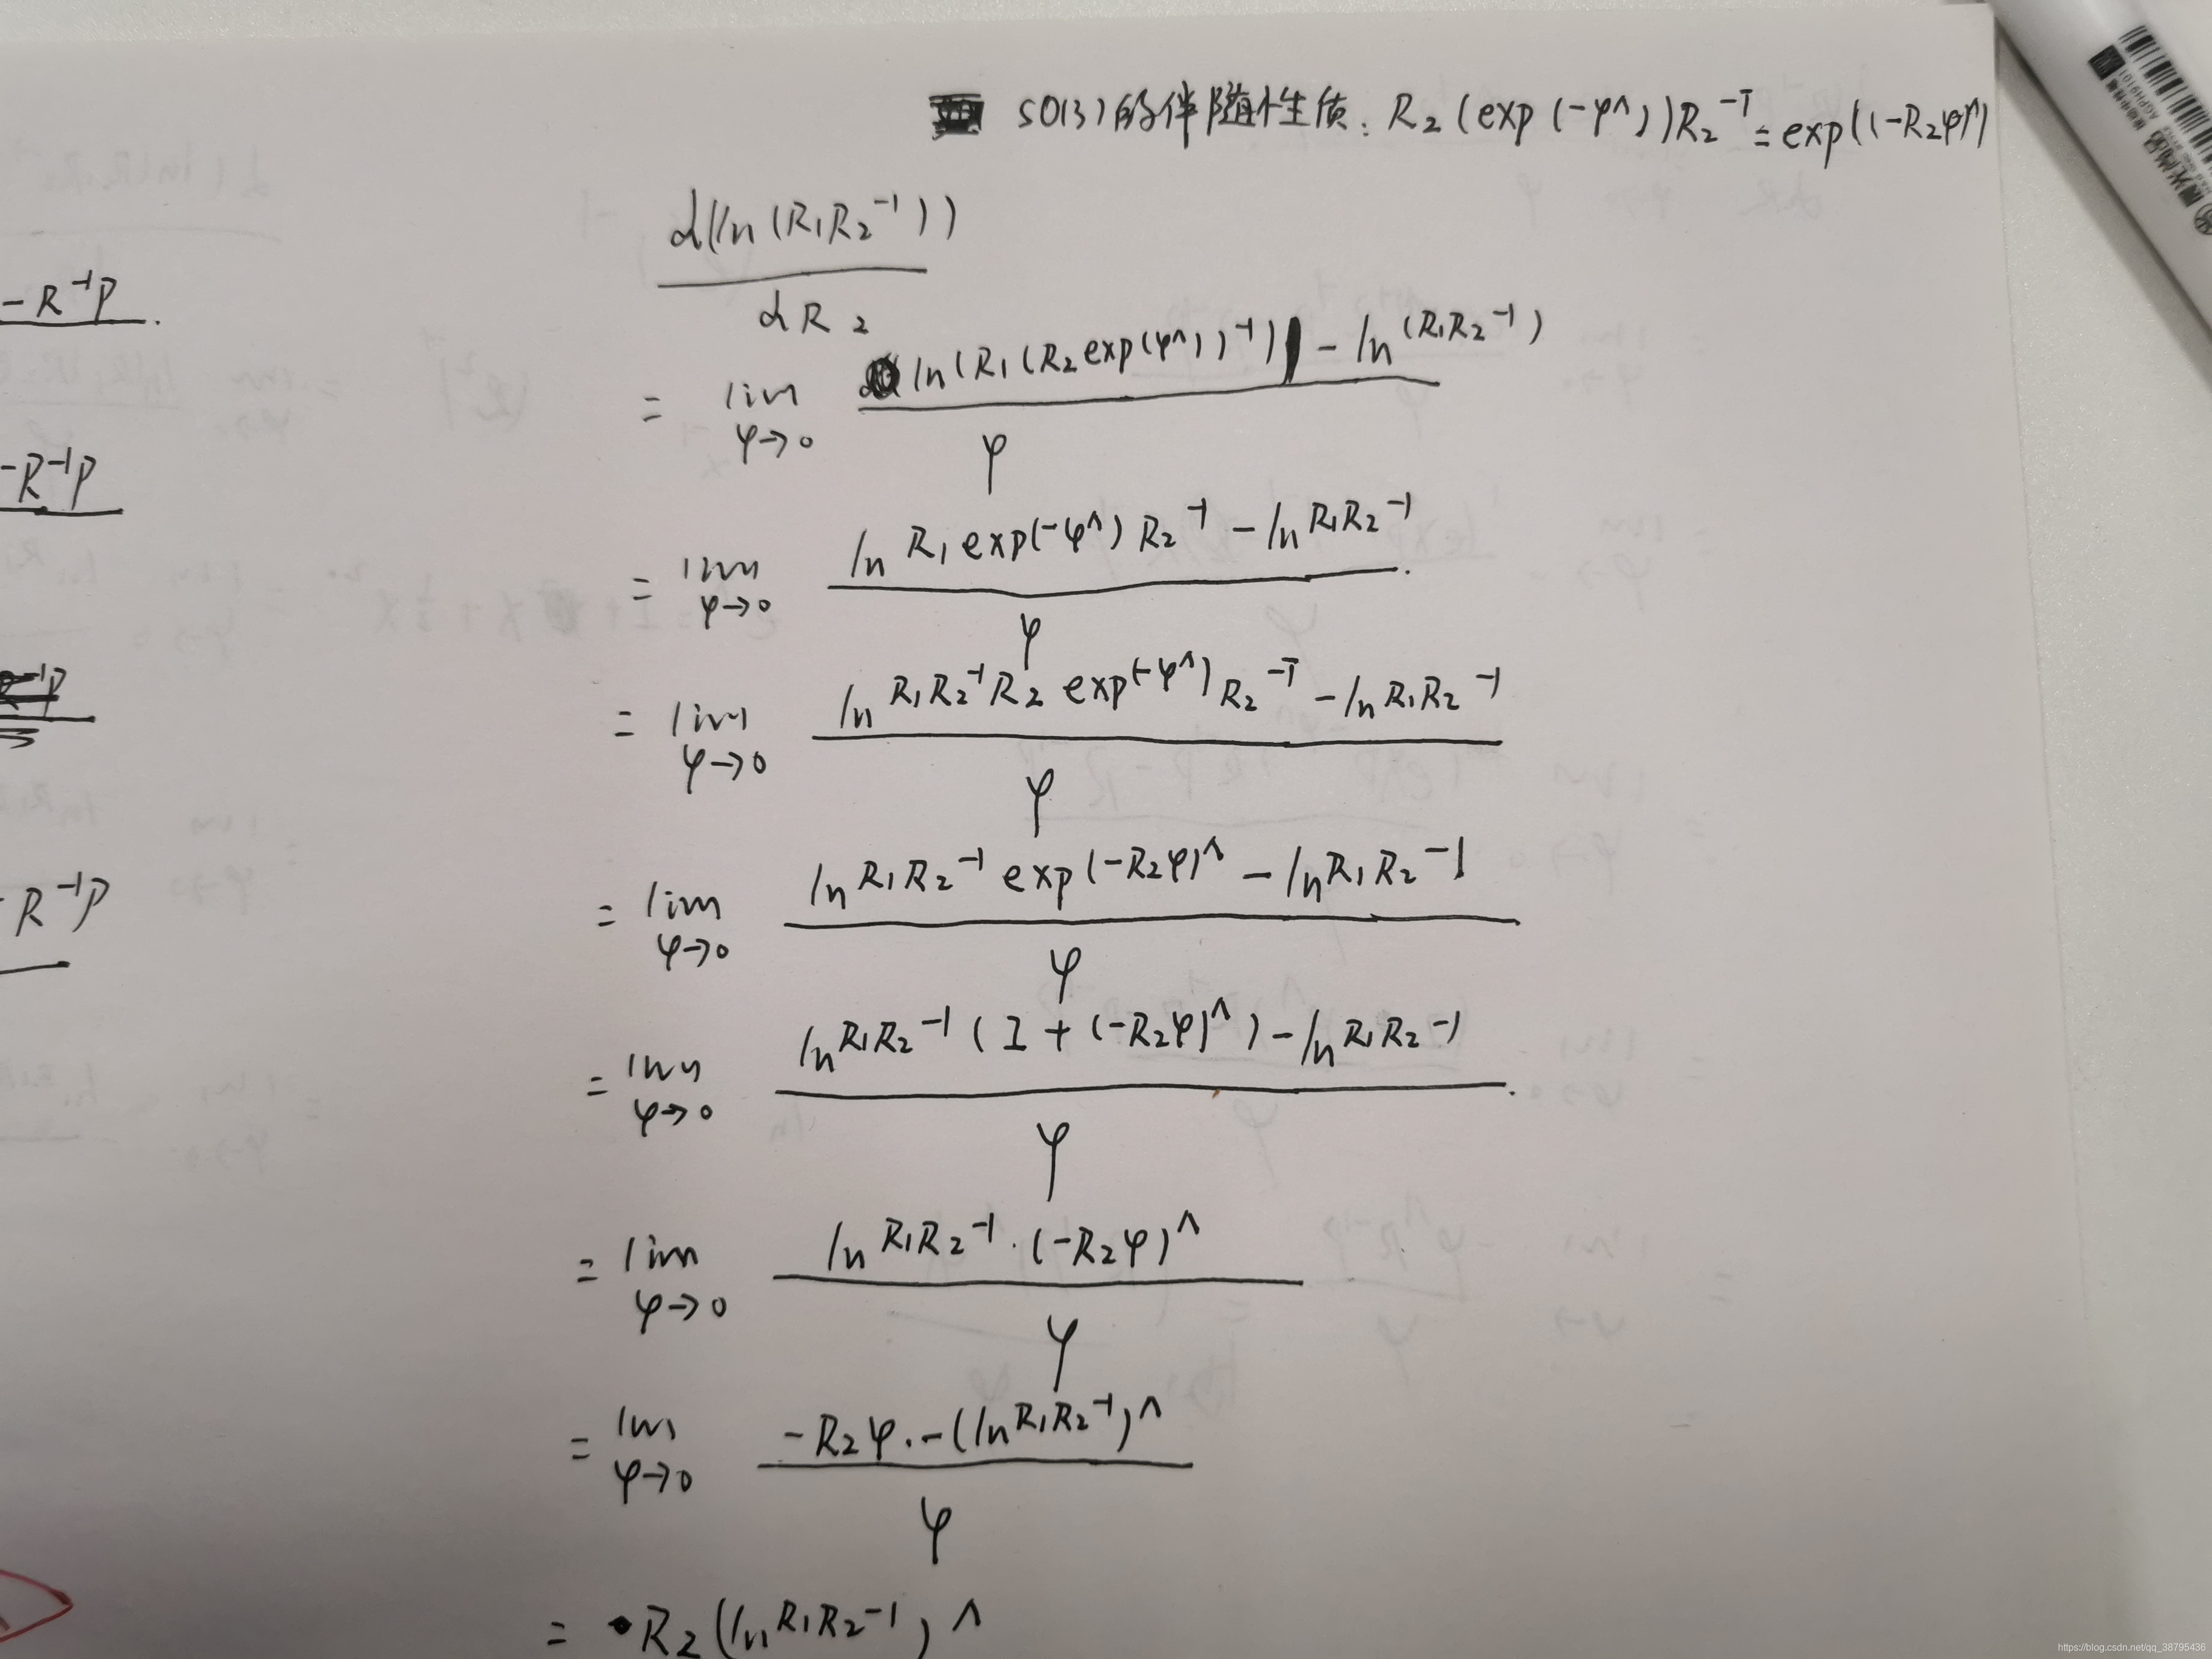 SO(3)的伴随性质: R₂(exp(-φ^))R₂⁻ᵀ = exp((-R₂φ)^)
d(ln(R₁R₂⁻¹))
dR₂
= lim φ→0 ln(R₁(R₂exp(φ^))⁻¹) - ln(R₁R₂⁻¹)
φ
= lim φ→0 ln R₁exp(-φ^)R₂⁻¹ - ln R₁R₂⁻¹
φ
= lim φ→0 ln R₁R₂⁻¹R₂ exp(-φ^)R₂⁻ᵀ - ln R₁R₂⁻¹
φ
= lim φ→0 ln R₁R₂⁻¹ exp(-R₂φ)^ - ln R₁R₂⁻¹
φ
= lim φ→0 ln R₁R₂⁻¹(I + (-R₂φ)^) - ln R₁R₂⁻¹
φ
= lim φ→0 ln R₁R₂⁻¹·(-R₂φ)^
φ
= lim φ→0 -R₂φ·-(ln R₁R₂⁻¹)^
φ
= R₂(ln R₁R₂⁻¹)^
-R⁻¹P.
-R⁻¹P
⁻¹P
-R⁻¹P
AGPH9101
https://blog.csdn.net/qq_38795436